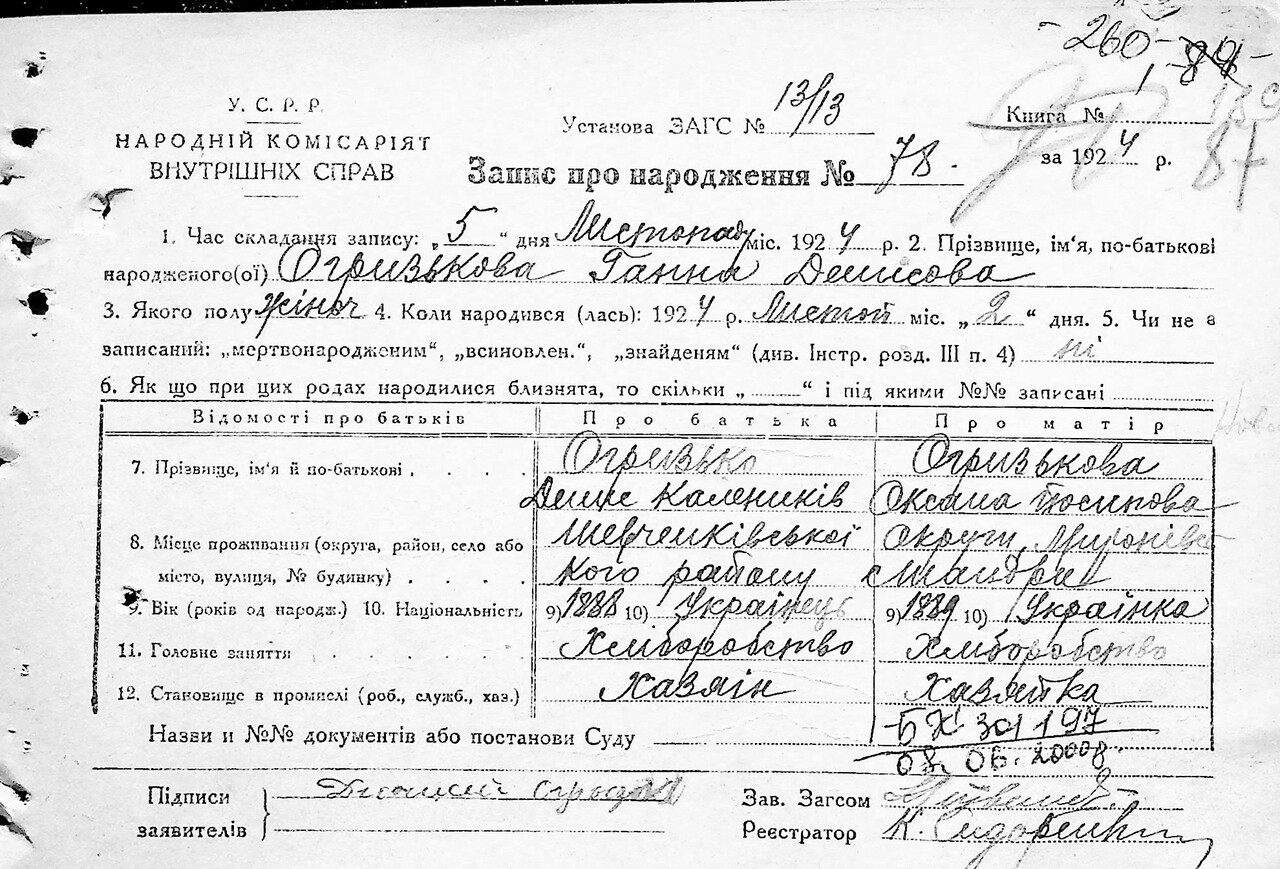 - 260 -
У. С. Р. Р.
НАРОДНІЙ КОМІСАРІЯТ
ВНУТРІШНІХ СПРАВ
Установа ЗАГС № 13/13
Книга № 1
за 1924 р.
87
Запис про народження № 78.
1. Час складання запису: „5“ дня Листопад міс. 1924 р. 2. Прізвище, ім'я, по-батькові
народженого(ої) Огризькова Ганна Денисова
3. Якого полу жіноч 4. Коли народився (лась): 1924 р. Листоп міс. „2“ дня. 5. Чи не є
записаний: „мертвонародженим“, „всиновлен.“, „знайденям“ (див. Інстр. розд. III п. 4) ні
6. Як що при цих родах народилися близнята, то скільки „ “ і під якими №№ записані
Відомості про батьків Про батька Про матір
7. Прізвище, ім'я й по-батькові Огризько Огризькова
Денис Калеників Оксана Йосипова
8. Місце проживання (округа, район, село або Шевченківської Округи, Миронівсь
місто, вулиця, № будинку) кого району с
9. Вік (років од народж.) 10. Національність 9) 1888 10) Українець 9) 1889 10) Українка
11. Головне заняття Хліборобство Хліборобство
12. Становище в промислі (роб., служб., хаз.) Хазяїн Хазяйка
Назви и №№ документів або постанови Суду
08. 06. 2000
Підписи
заявителів
Зав. Загсом
Реєстратор К. Сидоренко